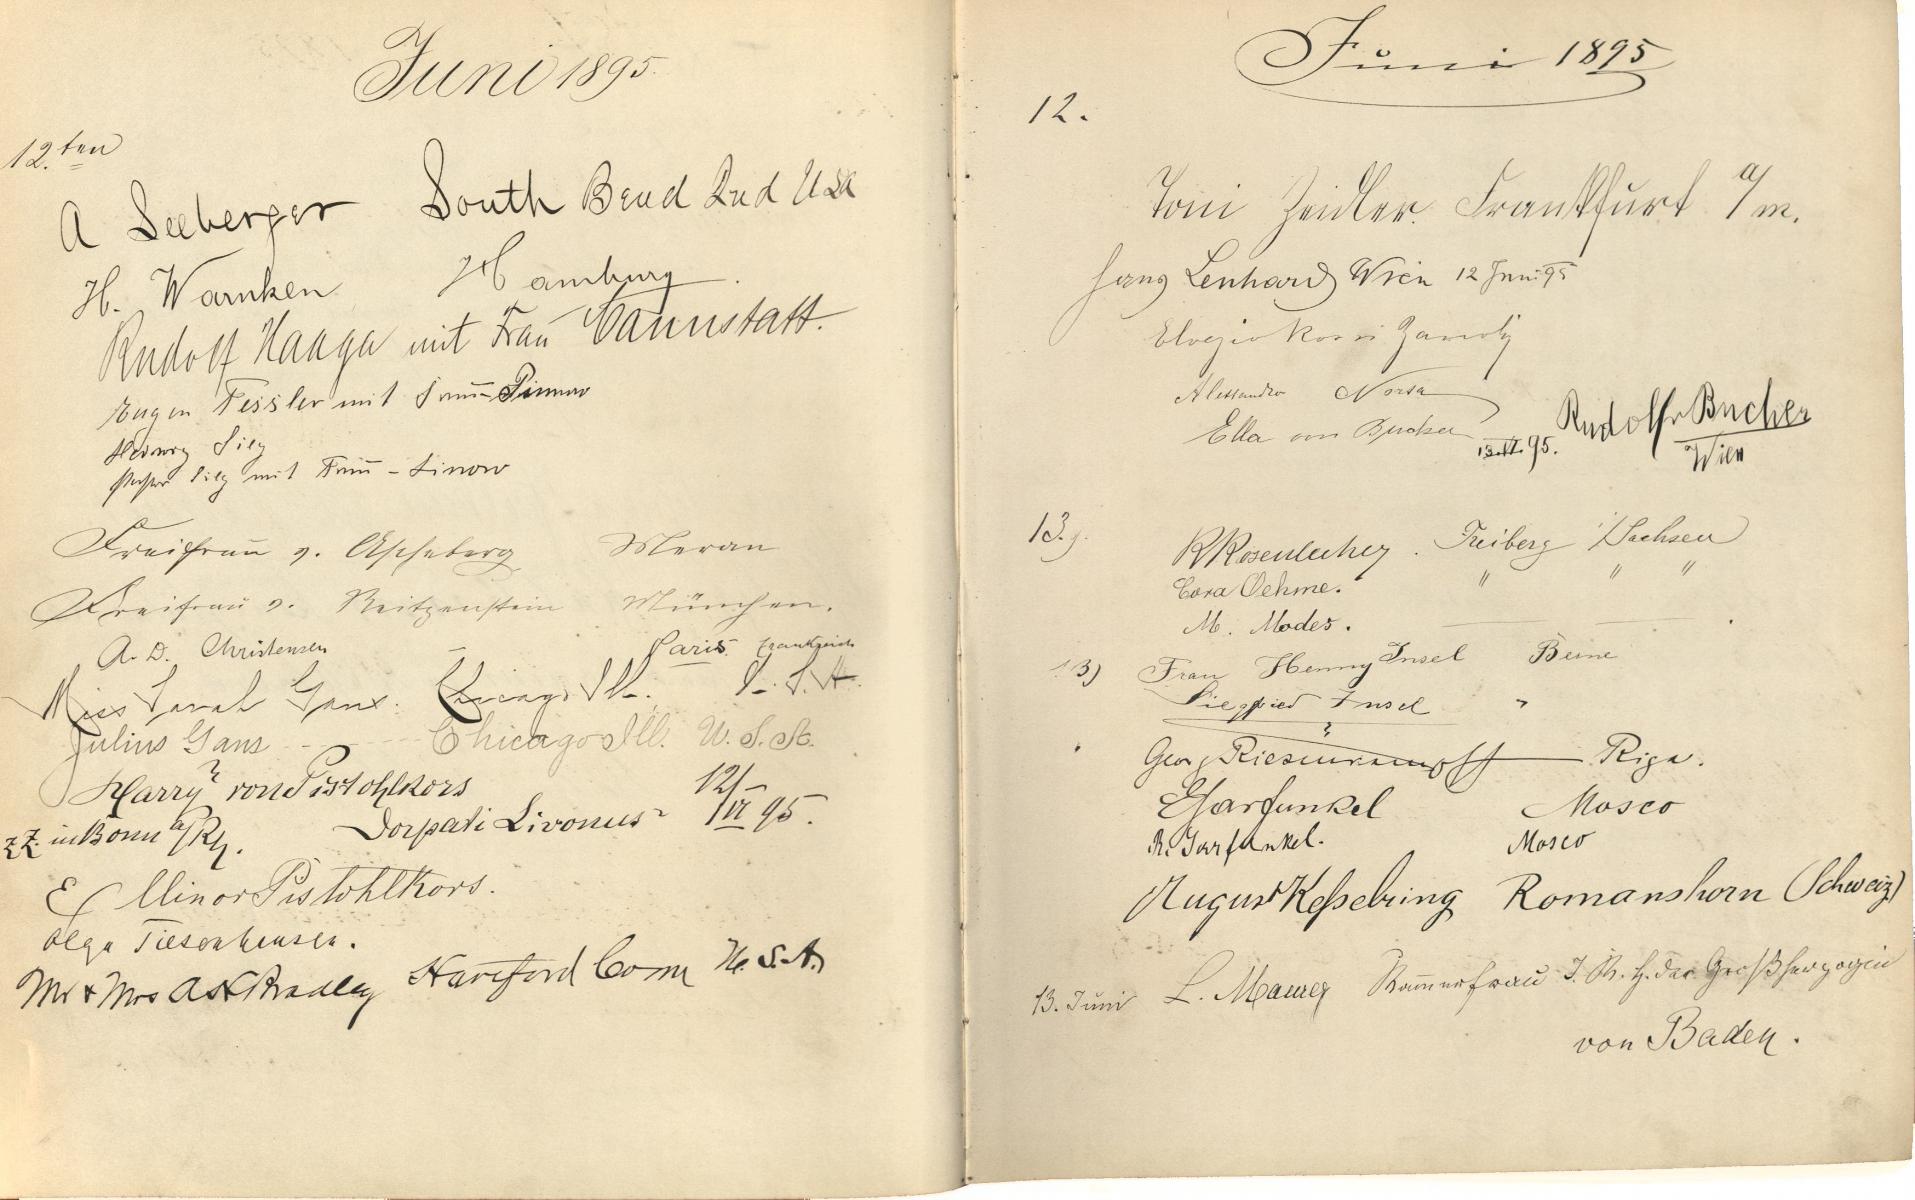 Juni 1895.
12.ten
A Seeberger South Bend Ind USA
H. Warnken Hamburg.
Rudolf Haaga mit Frau Cannstatt.
Eugen Fessler mit Frau
Hedwig
mit Frau
Freifrau v. Ascheberg Meran
Freifrau v. Reitzenstein München.
A. D. Christensen Paris Frankreich
Miss Sarah Gans. Chicago Ill. U.S.A.
Julius Gans Chicago Ill. U.S.A.
Harry von Pistohlkors 12/
z.Z. in Bonn a/Rh. Dorpati Livonus VI 95.
E Minor Pistohlkors.
Olga Tiesenhausen.
Mr & Mrs A H Bradley Hartford Conn U.S.A.
Juni 1895
12.
Toni Zeidler. Frankfurt a/m.
Lenhard Wien 12 Juni 95
Alessandro Norsa
Ella von Bucher
Rudolf v Bucher
13.VI.95.
Wien
13.
R Rosenlecher. Freiberg i/Sachsen
Cora Oehme. " " "
M. Modes.
13) Frau Henny Insel
Siegfried Insel "
Georg Riesenkampff Riga.
E Garfunkel Mosco
R. Garfunkel. Mosco
August Keßelring Romanshorn (Schweiz)
13. Juni L. Maurer Kammerfrau I. K. H. der Großherzogin
von Baden.